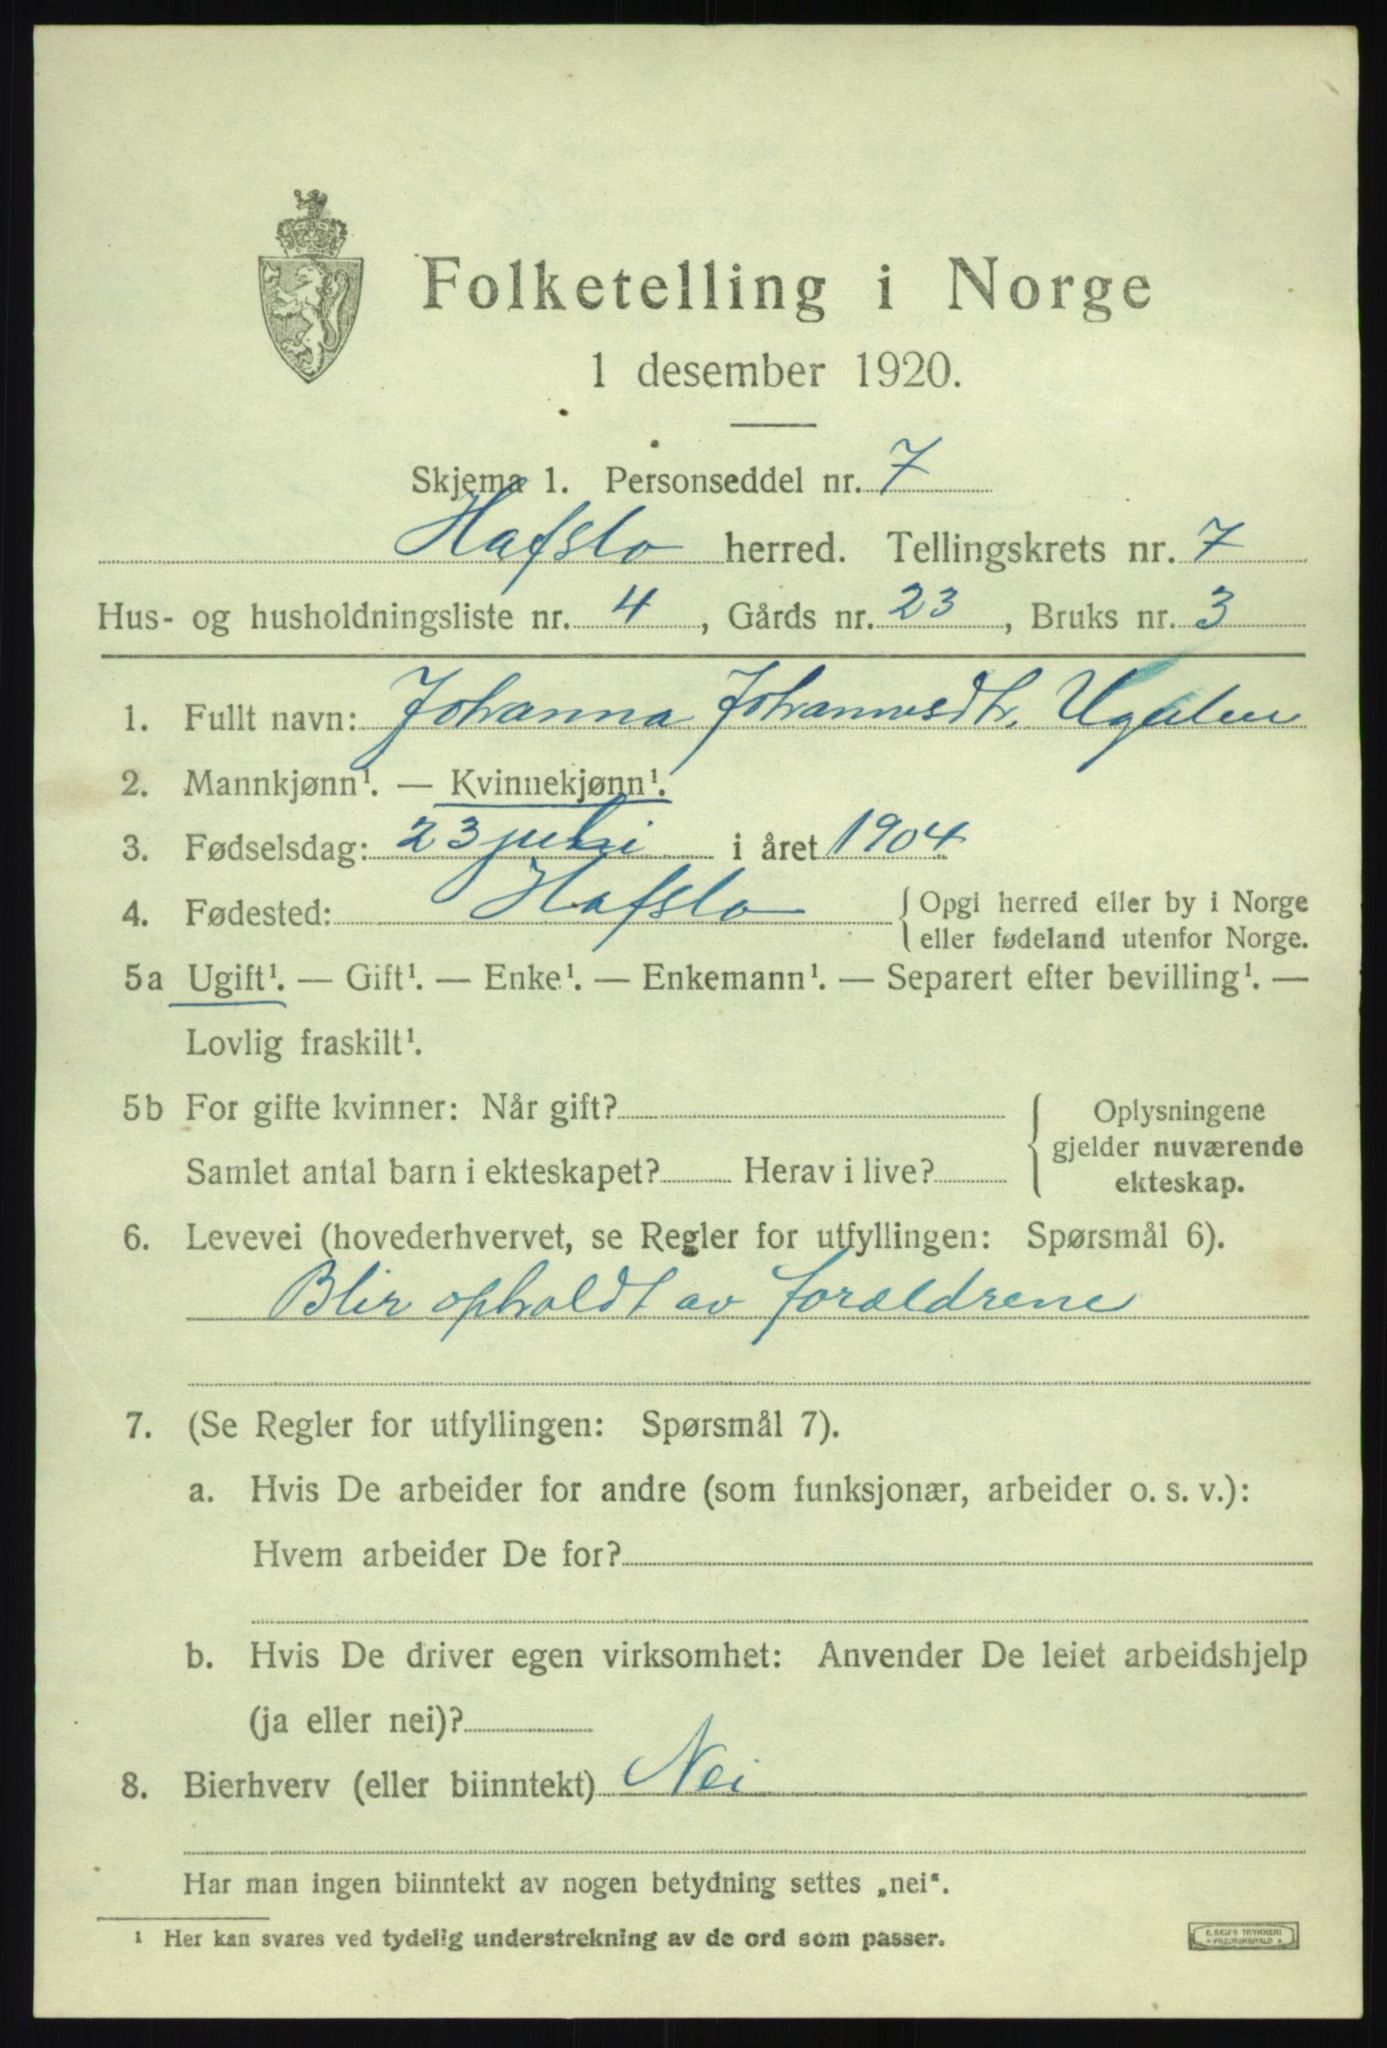 Folketelling i Norge
1 desember 1920.
Skjema 1. Personseddel nr. 7
Hafslo herred. Tellingskrets nr. 7
Hus- og husholdningsliste nr. 4, Gårds nr. 23, Bruks nr. 3
1. Fullt navn: Johanna Johannesdtr.
2. Mannkjønn¹. — Kvinnekjønn¹.
3. Fødselsdag: 23 juli i året 1904
4. Fødested: Hafslo { Opgi herred eller by i Norge
eller fødeland utenfor Norge.
5a Ugift¹. — Gift¹. — Enke¹. — Enkemann¹. — Separert efter bevilling¹. —
Lovlig fraskilt¹.
5b For gifte kvinner: Når gift? { Oplysningene
gjelder nuværende
Samlet antal barn i ekteskapet? Herav i live? ekteskap.
6. Levevei (hovederhvervet, se Regler for utfyllingen: Spørsmål 6).
Blir opholdt av forældrene
7. (Se Regler for utfyllingen: Spørsmål 7).
a. Hvis De arbeider for andre (som funksjonær, arbeider o. s. v.):
Hvem arbeider De for?
b. Hvis De driver egen virksomhet: Anvender De leiet arbeidshjelp
(ja eller nei)?
8. Bierhverv (eller biinntekt) Nei
Har man ingen biinntekt av nogen betydning settes „nei“.
¹ Her kan svares ved tydelig understrekning av de ord som passer.
E. SEM'S TRYKKERI
FREDRIKSHALD